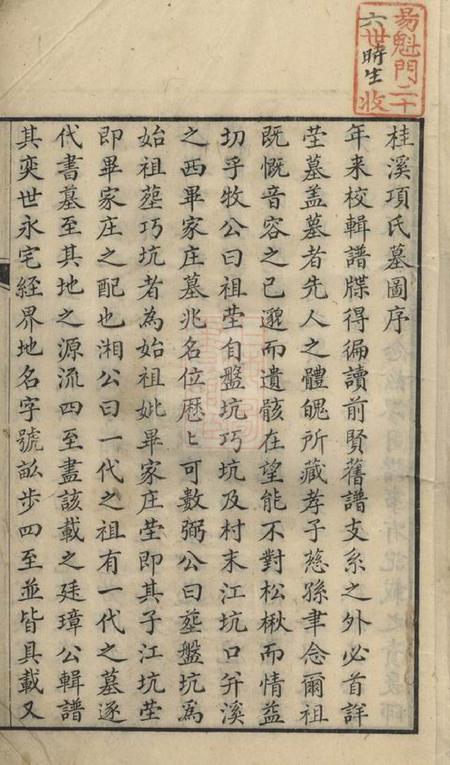 易魁門二十
六世時生收
桂溪項氏墓圖序
年来校輯譜牒得徧讀前賢舊譜支系之外必首詳
塋墓盖墓者先人之體魄所藏孝子慈孫聿念爾祖
既慨音容之已邈而遺骸在望能不對松楸而情益
切乎牧公曰祖塋自盤坑巧坑及村末江坑口并溪
之西畢家庄墓兆名位歷ヒ可數弼公曰葬盤坑為
始祖葬巧坑者為始祖妣畢家庄塋即其子江坑塋
即畢家庄之配也湘公曰一代之祖有一代之墓遂
代書墓至其地之源流四至盡該載之廷璋公輯譜
其奕世永宅經界地名字號畝步四至並皆具載又